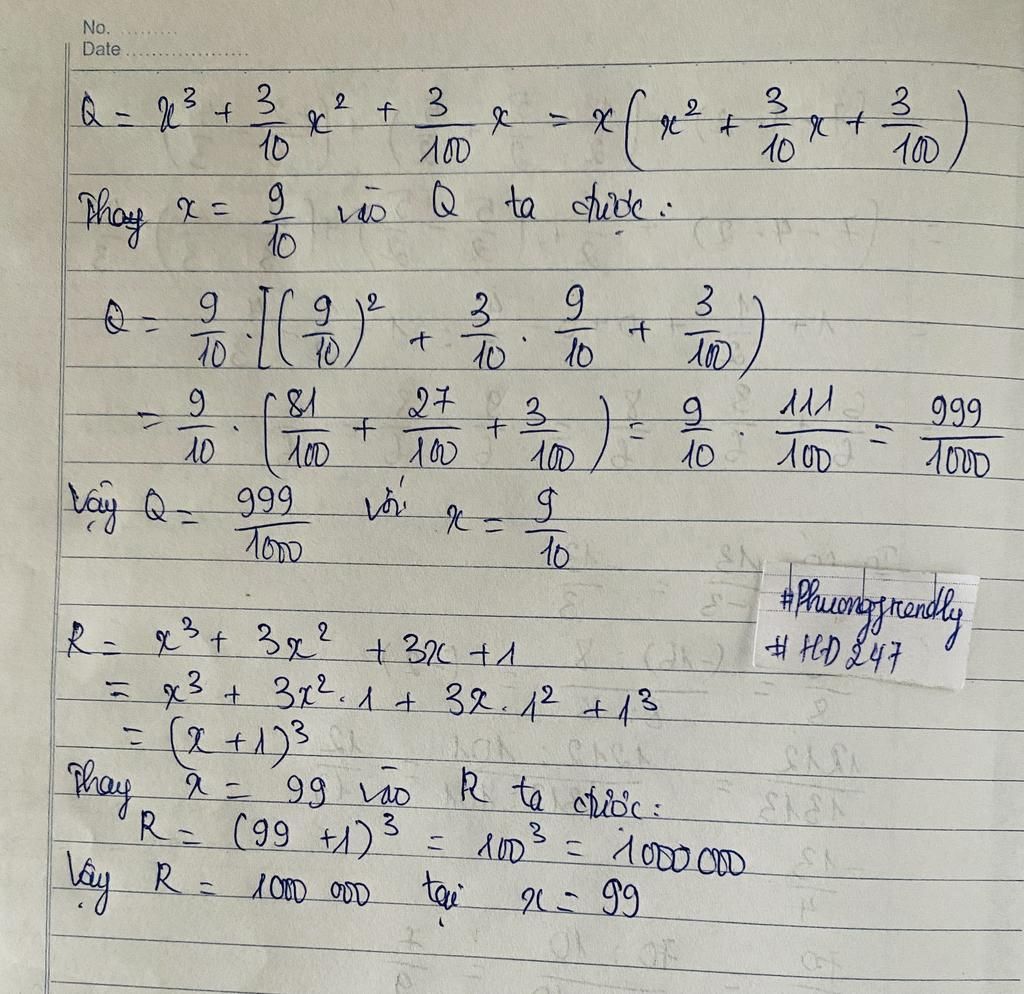 No. .........
Date ...................
Q = x³ + 3/10 x² + 3/100 x = x(x² + 3/10 x + 3/100)
Thay x = 9/10 vào Q ta được:
Q = 9/10 . [(9/10)² + 3/10 . 9/10 + 3/100)
= 9/10 . (81/100 + 27/100 + 3/100) = 9/10 . 111/100 = 999/1000
Vậy Q = 999/1000 với x = 9/10
#Phuongfriendly
# HD 247
R = x³ + 3x² + 3x + 1
= x³ + 3x² . 1 + 3x . 1² + 1³
= (x + 1)³
Thay x = 99 vào R ta được:
R = (99 + 1)³ = 100³ = 1000 000
Vậy R = 1000 000 tại x = 99